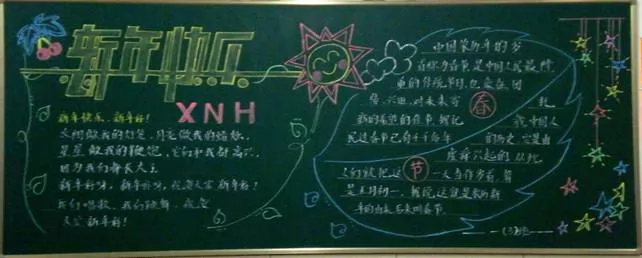 新年快乐
XNH
新年快乐，新年好！
太阳做我的灯笼，月亮做我的
星星做我的鞭炮，它们和我都高兴，
因为我们都长大了
新年好呀，新年好呀，祝贺大家新年好！
我们唱歌，我们跳舞，祝
大家新年好！
中国农历年的岁
首称为春节是中国人民最
重的传统节日，也象征团
结、兴旺，对未来寄
新的希望的佳节，据记
我中国人
民过春节已有4千多年
的历史，它是由
虞舜兴起的，
春
节
人们就把这
一天当作岁首，算
是正月初一，据说这就是农历新
年的由来后来叫春节